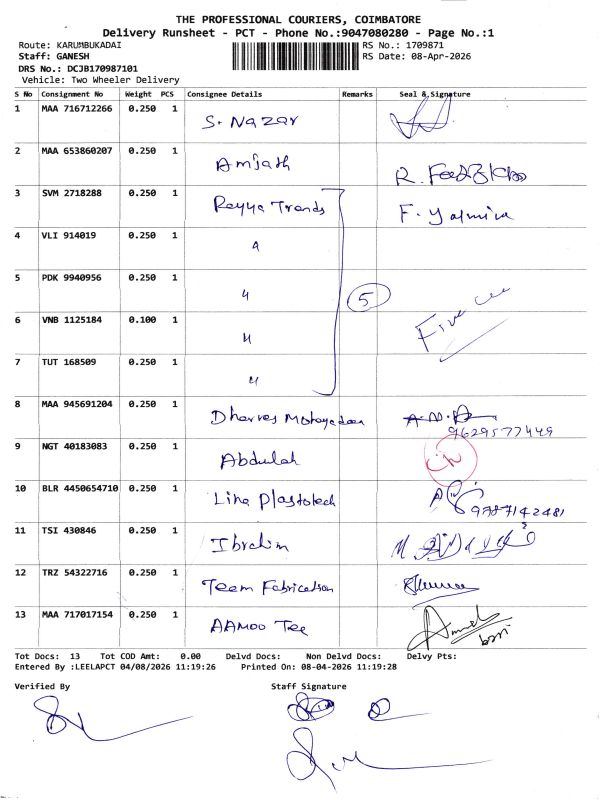 THE PROFESSIONAL COURIERS, COIMBATORE
Delivery Runsheet - PCT - Phone No.:9047080280 - Page No.:1
Route: KARUMBUKADAI RS No.: 1709871
Staff: GANESH RS Date: 08-Apr-2026
DRS No.: DCJB170987101
Vehicle: Two Wheeler Delivery
S No Consignment No Weight PCS Consignee Details Remarks Seal & Signature
1 MAA 716712266 0.250 1 S. Nazar
2 MAA 653860207 0.250 1 Amjath
3 SVM 2718288 0.250 1 Rayya Trends F. Yasmira
4 VLI 914019 0.250 1 "
5 PDK 9940956 0.250 1 " 5
6 VNB 1125184 0.100 1 " Five
7 TUT 168509 0.250 1 "
8 MAA 945691204 0.250 1 9629577449
9 NGT 40183083 0.250 1 Abdulah
10 BLR 4450654710 0.250 1 Line Plastotech 9787142481
11 TSI 430846 0.250 1 Ibrahim
12 TRZ 54322716 0.250 1 Teem Fabrication
13 MAA 717017154 0.250 1 AAMOO Tee
Tot Docs: 13 Tot COD Amt: 0.00 Delvd Docs: Non Delvd Docs: Delvy Pts:
Entered By :LEELAPCT 04/08/2026 11:19:26 Printed On: 08-04-2026 11:19:28
Verified By Staff Signature